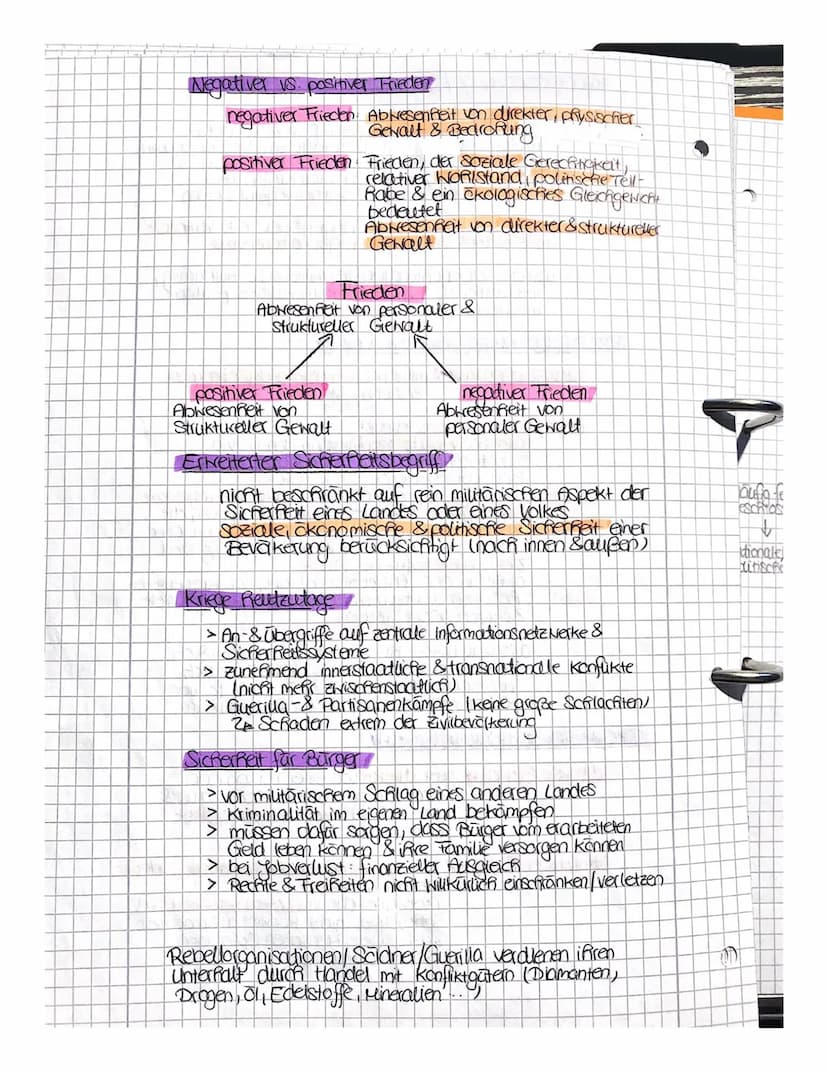 Negativer vs. positiver Frieden
negativer Frieden: Abwesenheit von direkter, physischer
Gewalt & Bedrohung
positiver Frieden: Frieden, der soziale Gerechtigkeit,
relativer Wohlstand, politische Teil-
habe & ein ökologisches Gleichgewicht
bedeutet
Abwesenheit von direkter & struktureller
Gewalt
Frieden
Abwesenheit von personaler &
struktureller Gewalt
positiver Frieden
negativer Frieden
Abwesenheit von
struktureller Gewalt
Abwesenheit von
personaler Gewalt
Erweiterter Sicherheitsbegriff
nicht beschränkt auf rein militärischen Aspekt der
Sicherheit eines Landes oder eines Volkes
soziale, ökonomische & politische Sicherheit einer
Bevölkerung berücksichtigt (nach innen & außen)
Kriege heutzutage
> An- & Übergriffe auf zentrale Informationsnetzwerke &
Sicherheitssysteme
> zunehmend innerstaatliche & transnationale Konflikte
(nicht mehr zwischenstaatlich)
> Guerilla- & Partisanenkämpfe (keine große Schlachten)
↳ Schaden extrem der Zivilbevölkerung
Sicherheit für Bürger
> vor militärischem Schlag eines anderen Landes
> Kriminalität im eigenen Land bekämpfen
> müssen dafür sorgen, dass Bürger vom erarbeiteten
Geld leben können & ihre Familie versorgen können
> bei Jobverlust: finanzieller Ausgleich
> Rechte & Freiheiten nicht willkürlich einschränken/verletzen
Rebellorganisationen/Söldner/Guerilla verdienen ihren
Unterhalt durch Handel mit Konfliktgütern (Diamanten,
Drogen, Öl, Edelstoffe, Mineralien ...)